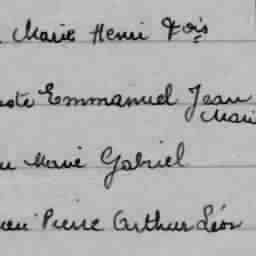 Marie Henri Fçois
Emmanuel Jean
Marie
Marie Gabriel
Pierre Arthur Léon